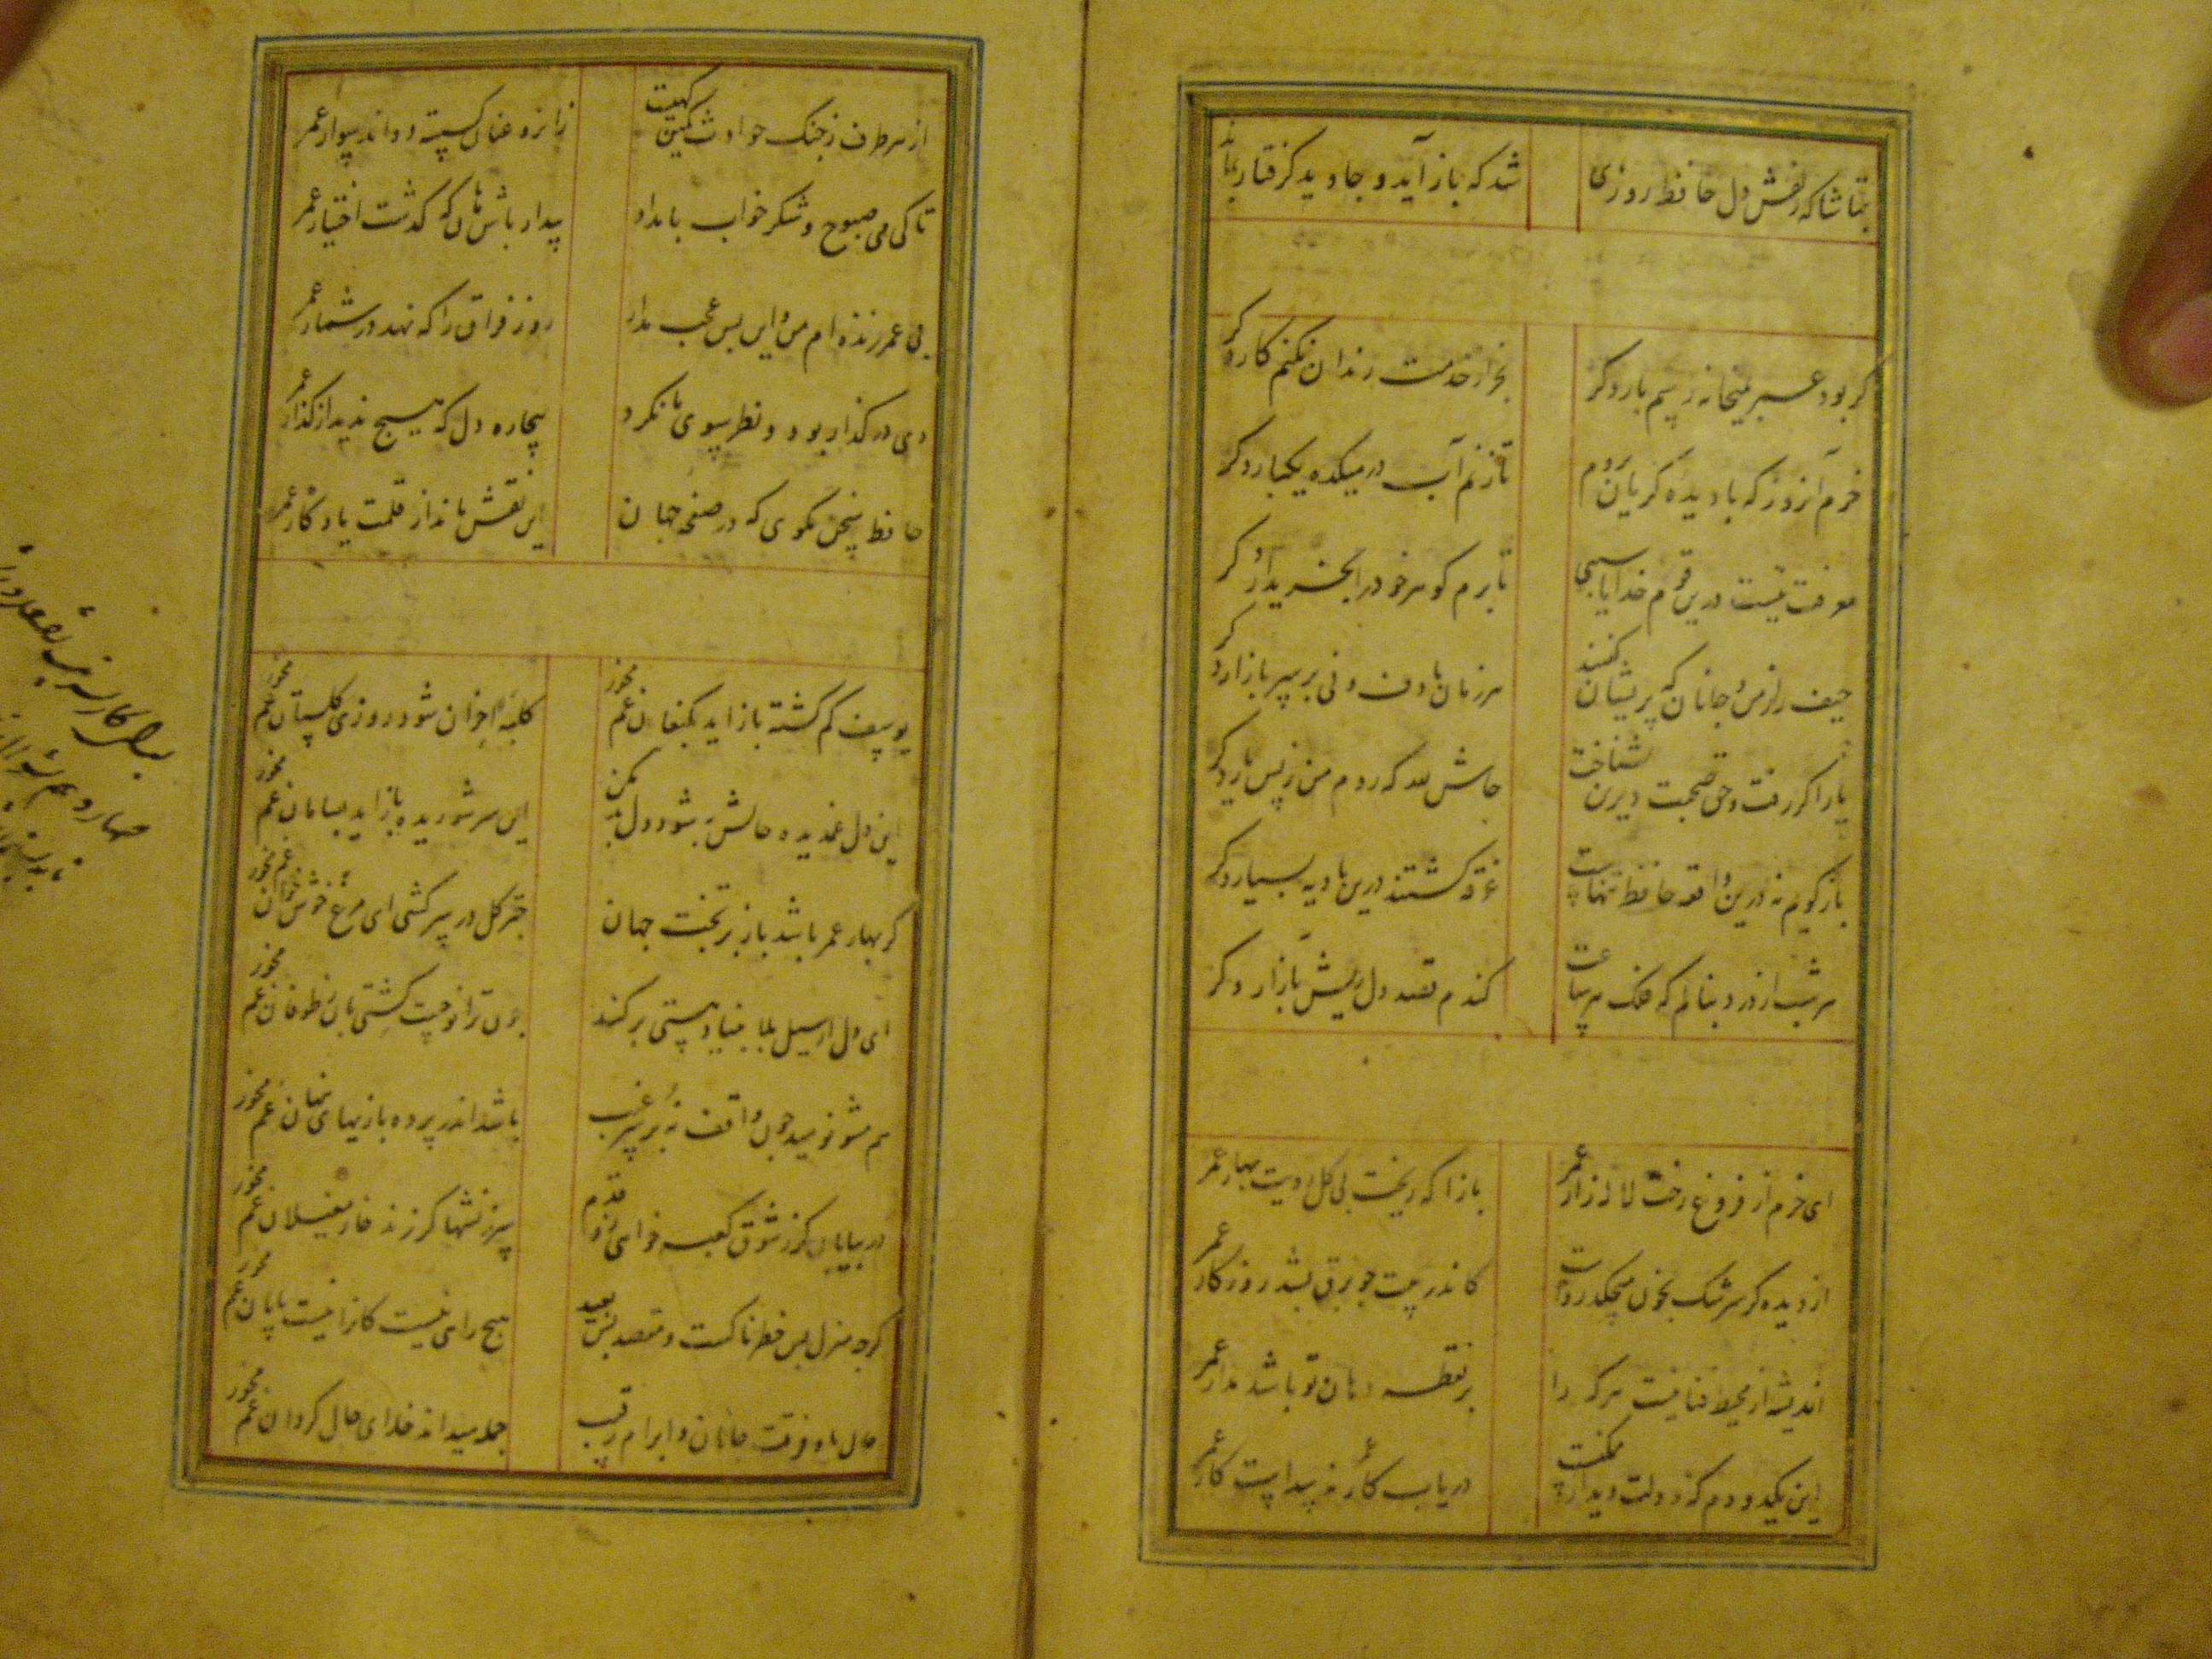 بتماشاکه زلفش دل حافظ روزی شد که باز آید و جاوید گرفتار بماند
گر بود عمر بمیخانه رسم بار دگر بجز از خدمت رندان نکنم کار دگر
خرم آنروز که با دیده گریان بروم تا زنم آب در میکده یکبار دگر
معرفت نیست درین قوم خدایا سببی تا برم گوهر خود را بخریدار دگر
هر زمان با دف و نی بر سر بازار دگر
یار اگر رفت و حق صحبت دیرین نشناخت حاش لله که روم من ز پس یار دگر
باز گویم نه درین واقعه حافظ تنهاست غرقه گشتند درین بادیه بسیار دگر
هر شب از درد بنالم که فلک هر ساعت کندم قصد دل ریش بازار دگر
ای خرم از فروغ رخت لاله زار عمر بازا که ریخت بی گل رویت بهار عمر
از دیده گر سرشک بخون میچکد رواست کاندر غمت چو برق بشد روزگار عمر
اندیشه از محیط فنا نیست هر که را بر نقطه دهان تو باشد مدار عمر
این یکدو دم که دولت دیدار ممکنست دریاب کار ما که نه پیداست کار عمر
از هر طرف ز جنگ حوادث کمین گهیست زانرو عنان گسسته دواند سوار عمر
تا کی می صبوح و شکر خواب بامداد بیدار باش هان که گذشت اختیار عمر
بی عمر زنده ام من و این بس عجب مدار روز فراق را که نهد در شمار عمر
دی در گذار بود و نظر سوی ما نکرد بیچاره دل که هیچ ندید از گذار عمر
حافظ سخن بگوی که در صفحه جهان این نقش ماند از قلمت یادگار عمر
یوسف گم گشته باز اید بکنعان غم مخور کلبه احزان شود روزی گلستان غم مخور
این دل غمدیده حالش به شود دل بد مکن این سر شوریده باز اید بسامان غم مخور
گر بهار عمر باشد باز بر تخت جهان چتر گل در سر کشی ای مرغ خوش خوان غم مخور
ای دل ار سیل بلا بنیاد هستی بر کند چون ترا نوحست کشتی بان ز طوفان غم مخور
هم مشو نومید چون واقف نه بر سر غیب باشد اندر پرده بازیهای نهان غم مخور
در بیابان گر ز شوق کعبه خواهی زد قدم سرزنشها گر زند خار مغیلان غم مخور
گرچه منزل بس خطرناکست و مقصد بس بعید هیچ راهی نیست کانرا نیست پایان غم مخور
حال ما و فرقت جانان و ابرام رقیب جمله میداند خدای حال گردان غم مخور